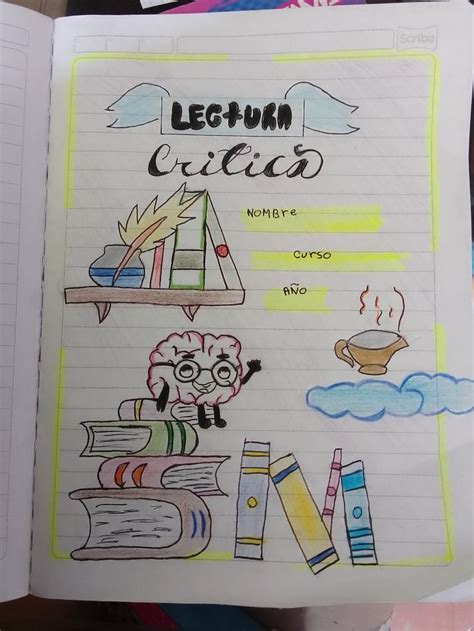 Scribe
LECTURA
Critica
NOMBRE
CURSO
AÑO